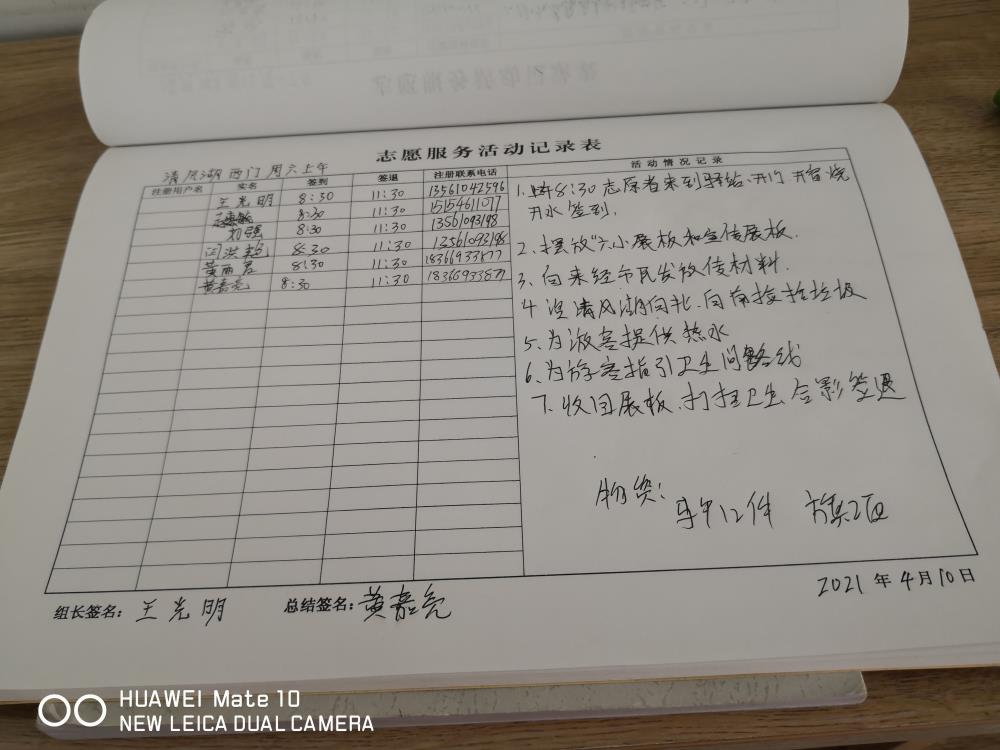 志愿服务活动记录表
清风湖西门 周六上午
注册用户名 实名 签到 签退 注册联系电话 活动情况记录
王光明 8:30 11:30 13561042596
8:30 11:30 15154611077
刘强 8:30 11:30 13561093198
闫洪艳 8:30 11:30 13561093198
黄丽君 8:30 11:30 18366933877
黄嘉亮 8:30 11:30 18366933877
1.上午8:30志愿者来到驿站、开门开窗烧
开水签到.
2.摆放"六小展板和宣传展板.
3、向来经市民发放传材料.
4 沿清风湖向北、向南捡拾垃圾
5、为游客提供热水
6、为游客指引卫生间路线
7、收回展板、打扫卫生合影签退
物资:
马甲12件 旗2面
组长签名: 王光明 总结签名: 黄嘉亮 2021年4月10日
HUAWEI Mate 10
NEW LEICA DUAL CAMERA